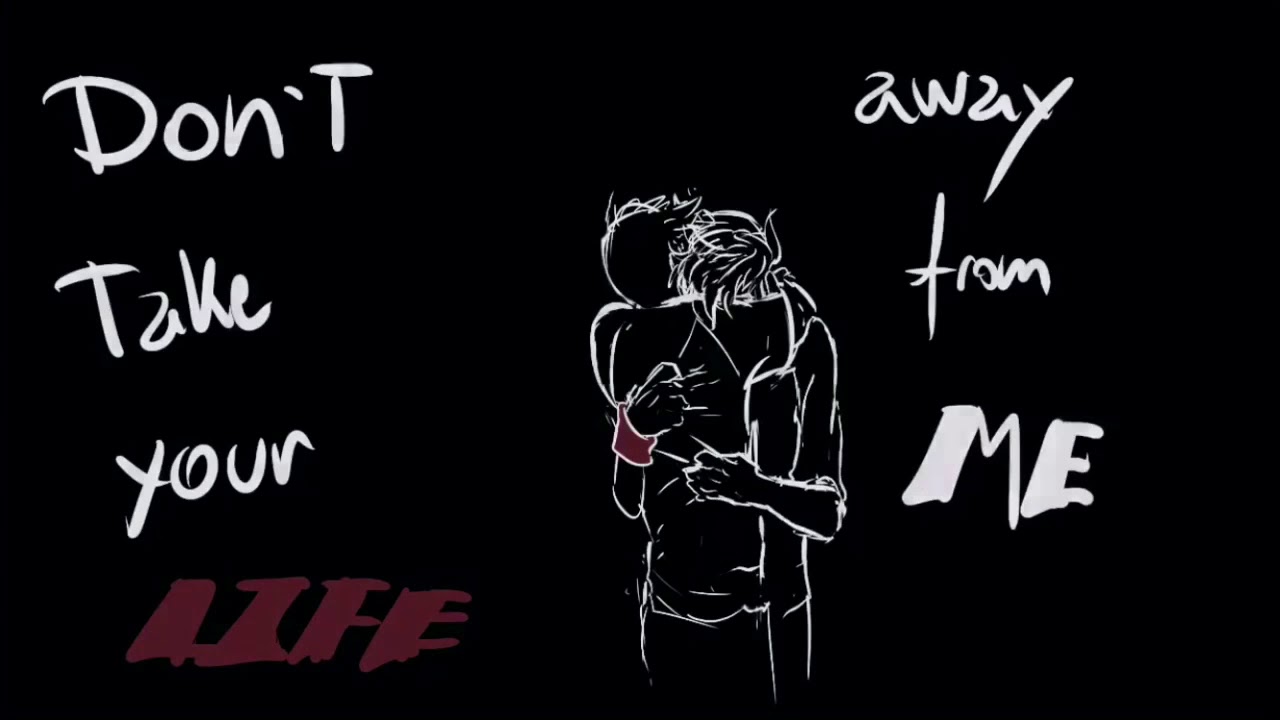 Don't
Take
your
LIFE
away
from
ME